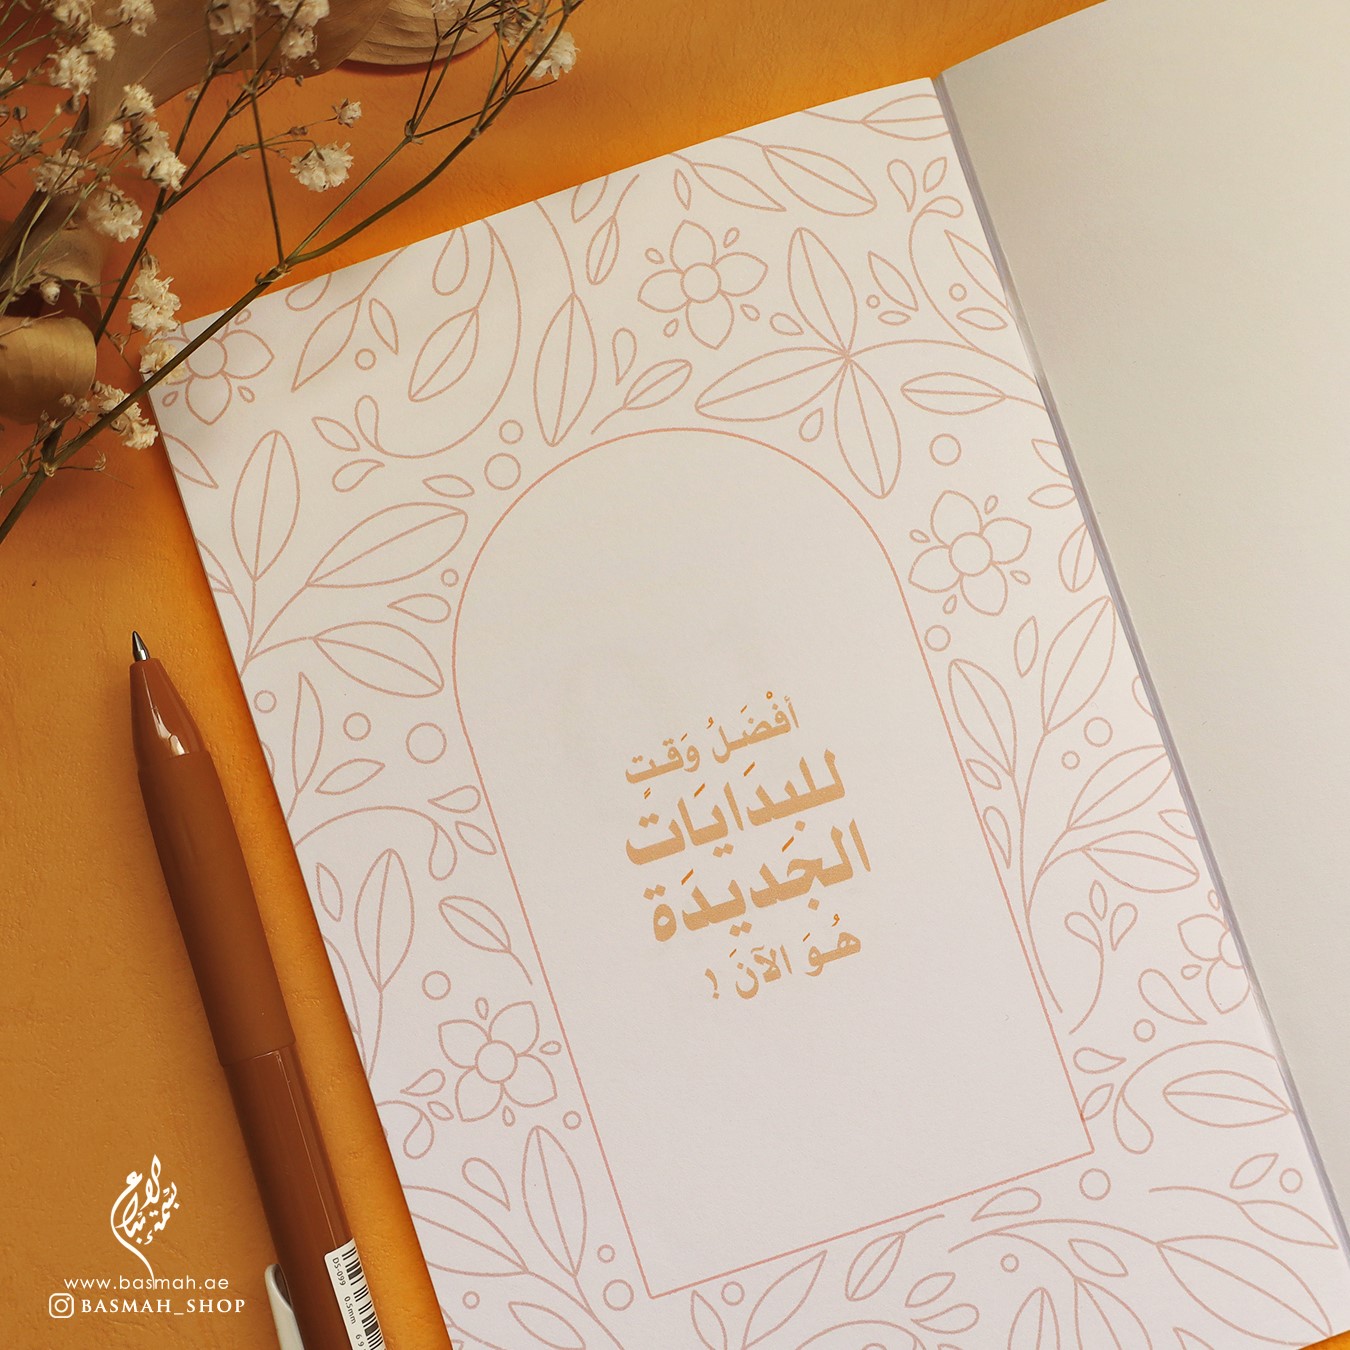 أفْضَلُ وَقتٍ
للبدَايَاتِ
الجَديدَة
هُوَ الآنَ !
بسمة الإبداع
www.basmah.ae
BASMAH_SHOP
DS-099 0.5mm